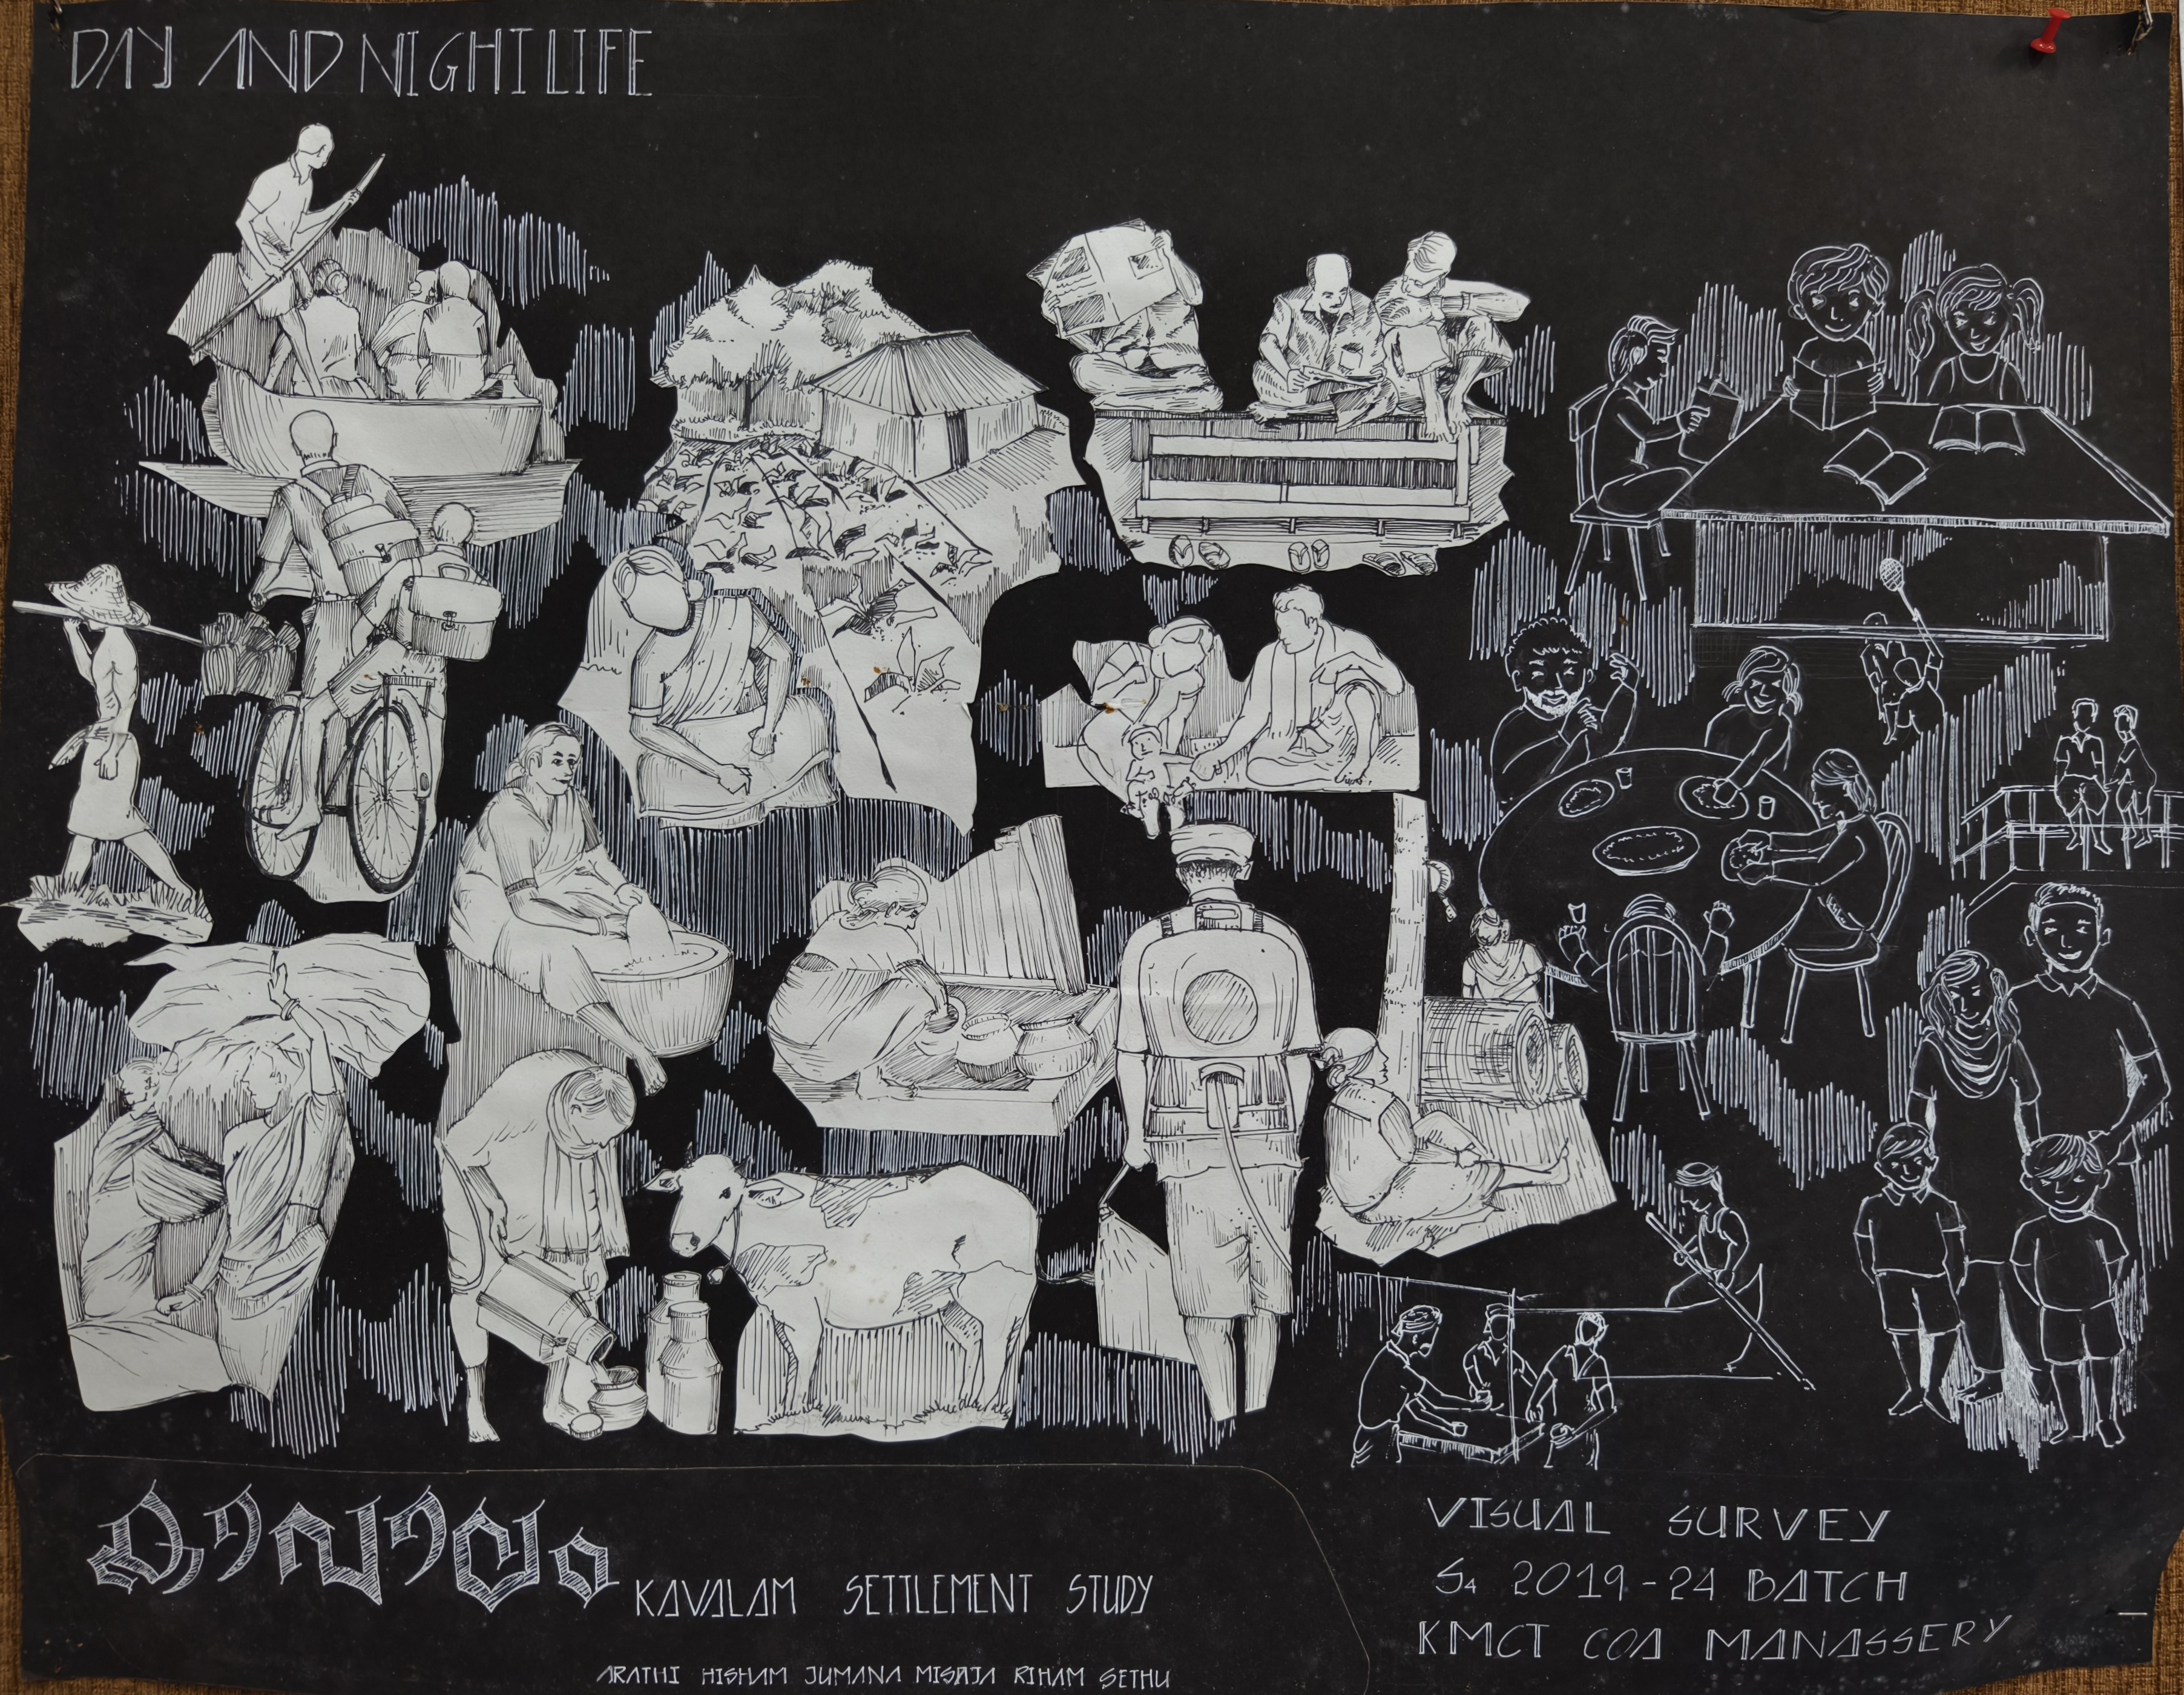 DAY AND NIGHT LIFE
കാവാലം KAVALAM SETTLEMENT STUDY
ARATHI HISHAM JUMANA RIHAM SETHU
VISUAL SURVEY
S4 2019-24 BATCH
KMCT COA MANASSERY